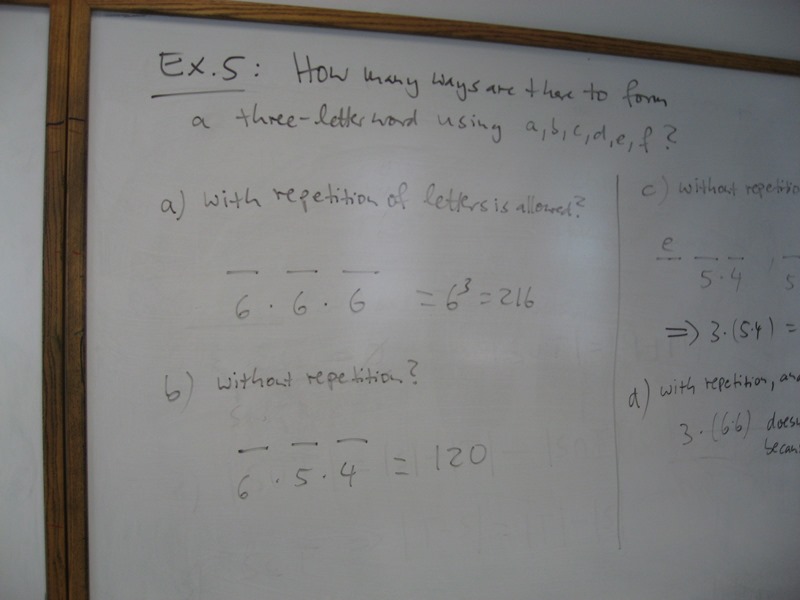 Ex.5: How many ways are there to form
a three-letter word using a,b,c,d,e,f?
a) with repetition of letters is allowed?
6 · 6 · 6 = 6³ = 216
b) without repetition?
6 · 5 · 4 = 120
c) without repetition
e
5·4 , 5
⇒ 3·(5·4) =
d) with repetition, and
3·(6·6) doesn
becau